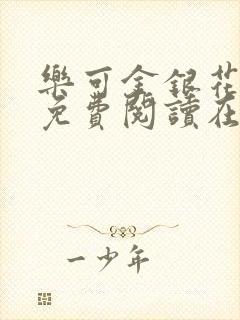 樂可金銀花
免費閱讀在
一少年